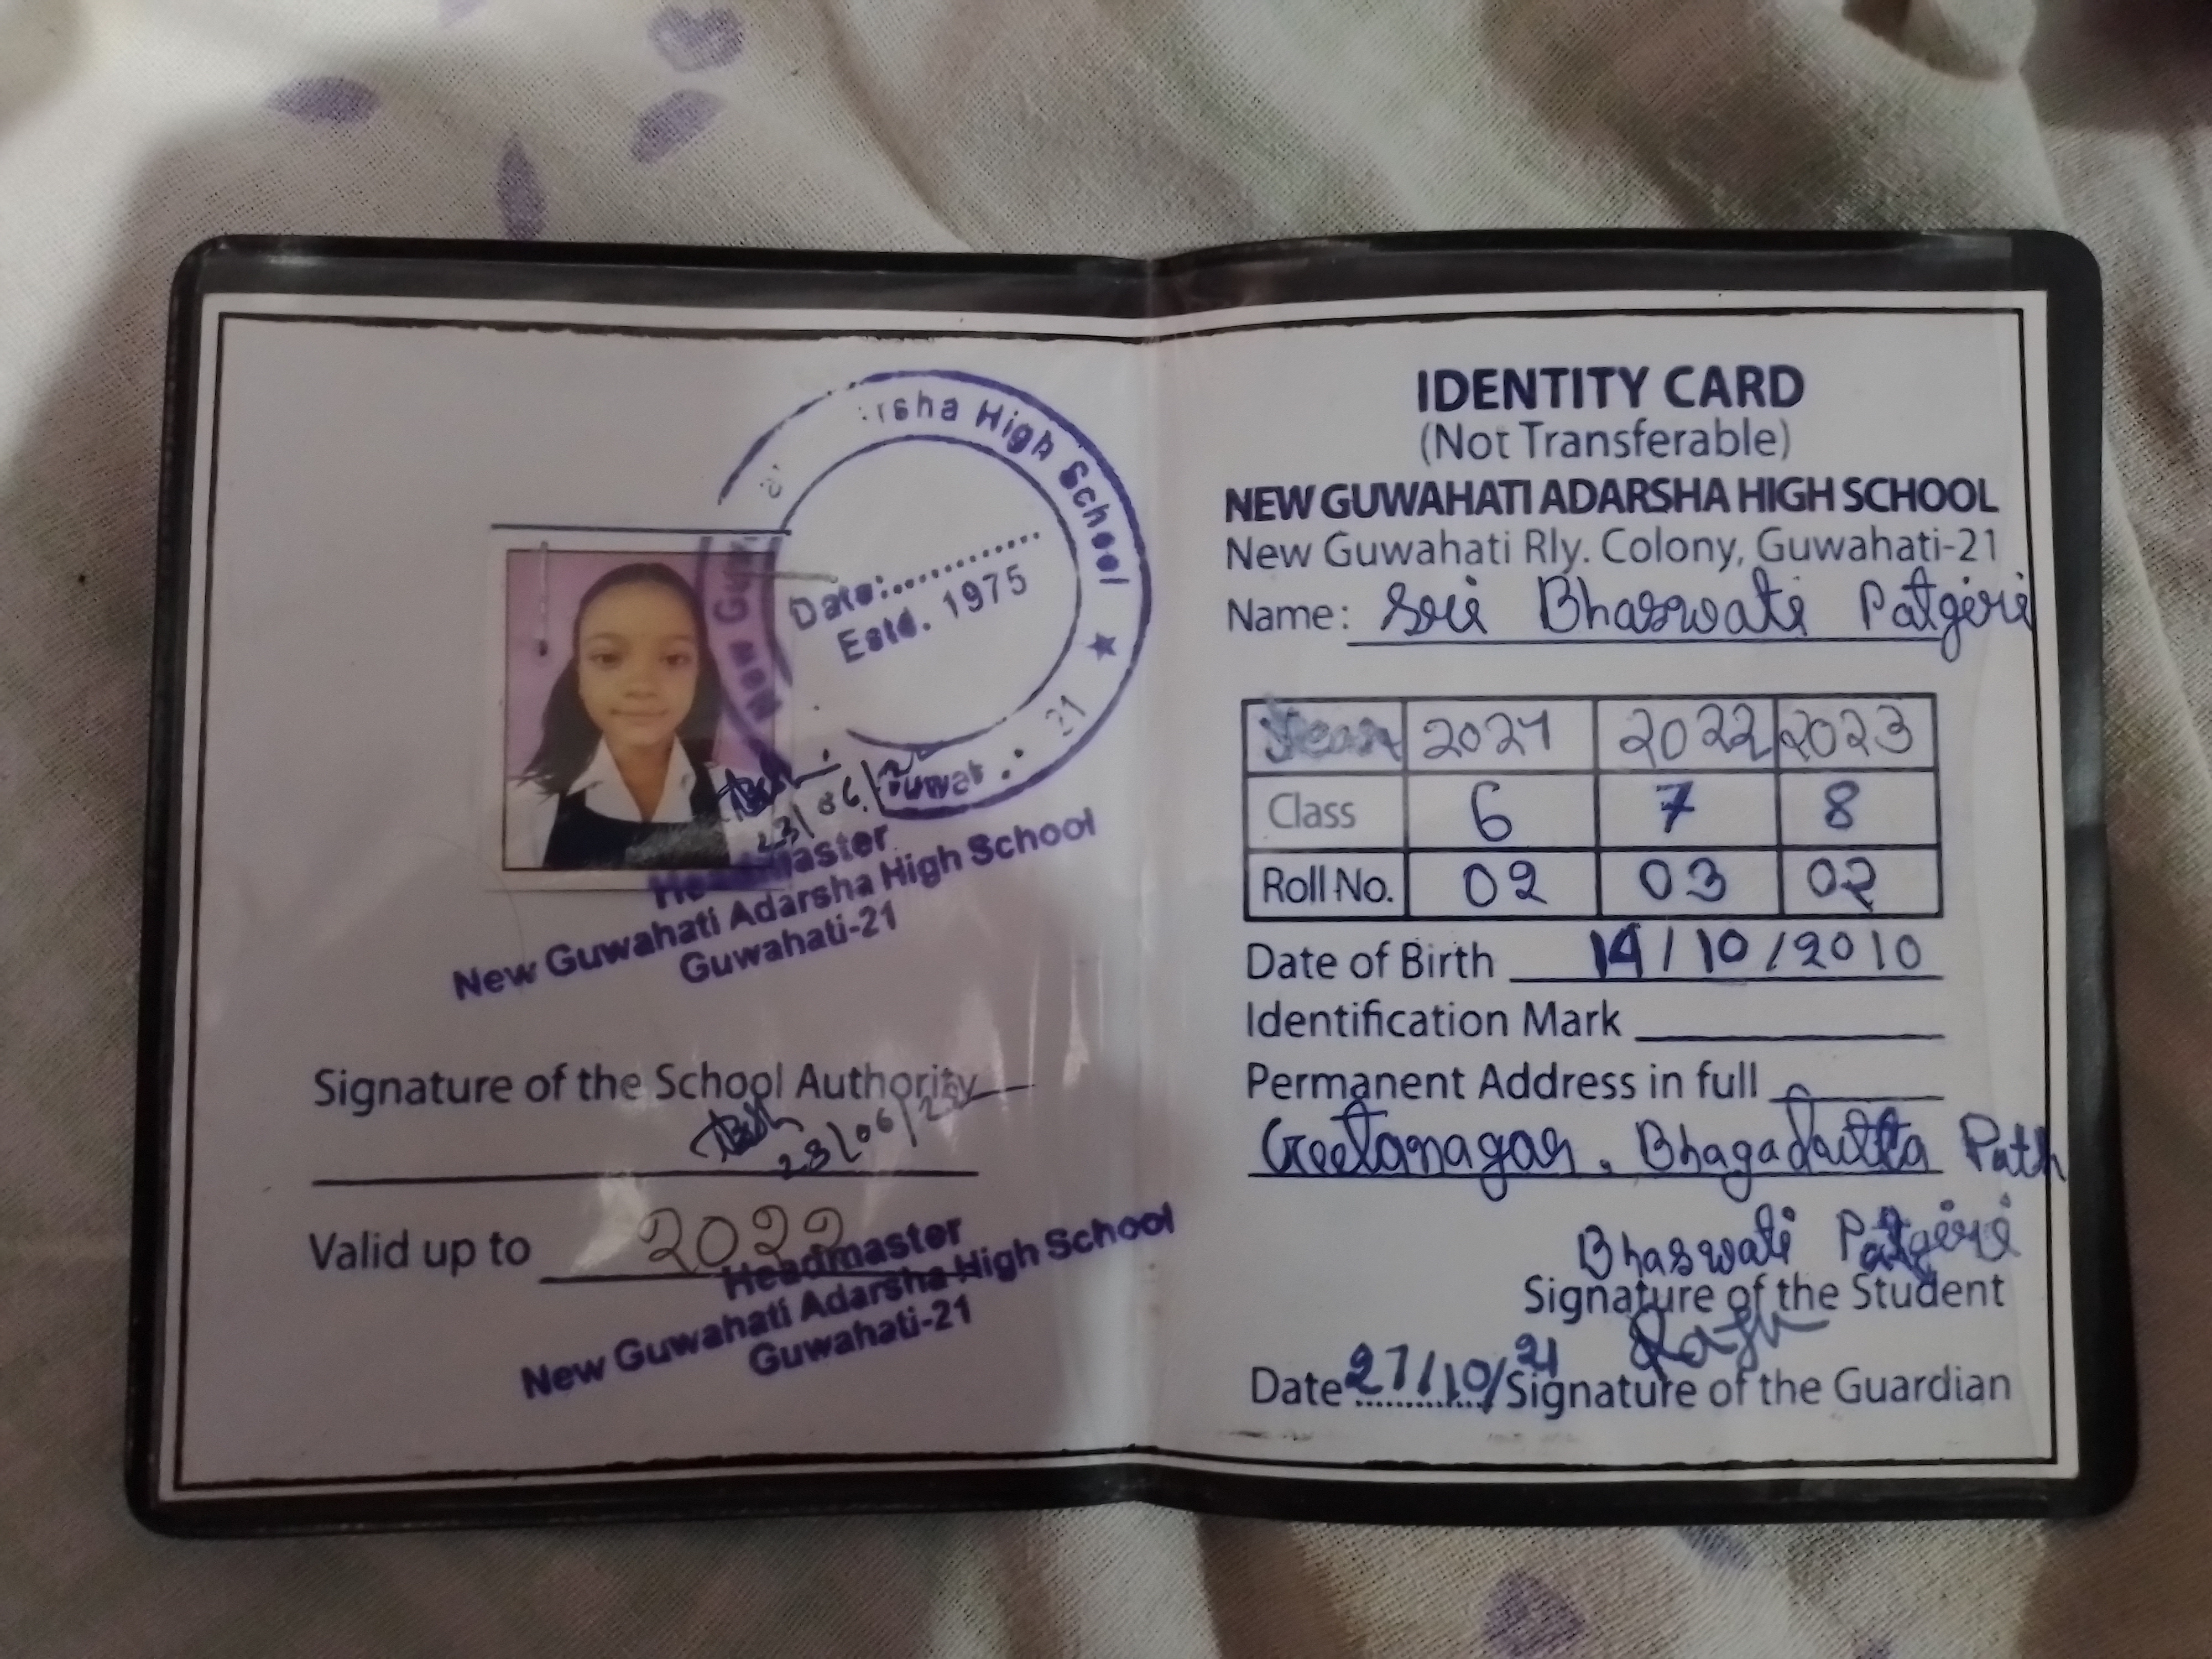 rsha High School
New Guw
Date:............
Estd. 1975
21
23/06/
Headmaster
New Guwahati Adarsha High School
Guwahati-21
Signature of the School Authority
Valid up to 2022
Headmaster
New Guwahati Adarsha High School
Guwahati-21
IDENTITY CARD
(Not Transferable)
NEW GUWAHATI ADARSHA HIGH SCHOOL
New Guwahati Rly. Colony, Guwahati-21
Name: Sri Bhaswati Patgiri
Year 2021 2022 2023
Class 6 7 8
Roll No. 02 03 02
Date of Birth 14/10/2010
Identification Mark
Permanent Address in full
Geetanagar, Bhagadatta Path
Bhaswati Patgiri
Signature of the Student
Date 27/10/21 Signature of the Guardian